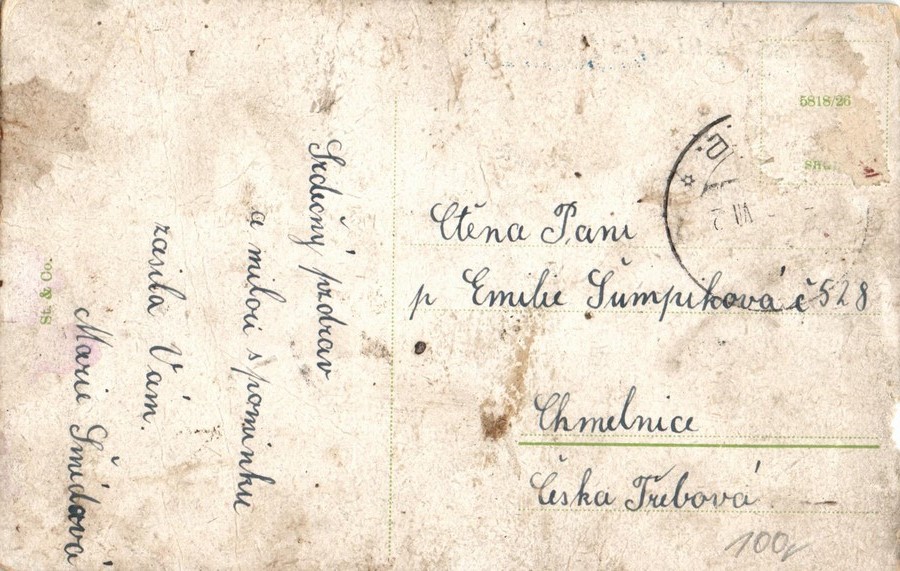 Srdečný pzdrav
a milou spominku
zasila Vám.
Marie Šmídová
St. & Co.
5818/26
7 VII
Ctěna Pani
p Emilie Šumpiková č 528
Chmelnice
Česka Třebová
100,